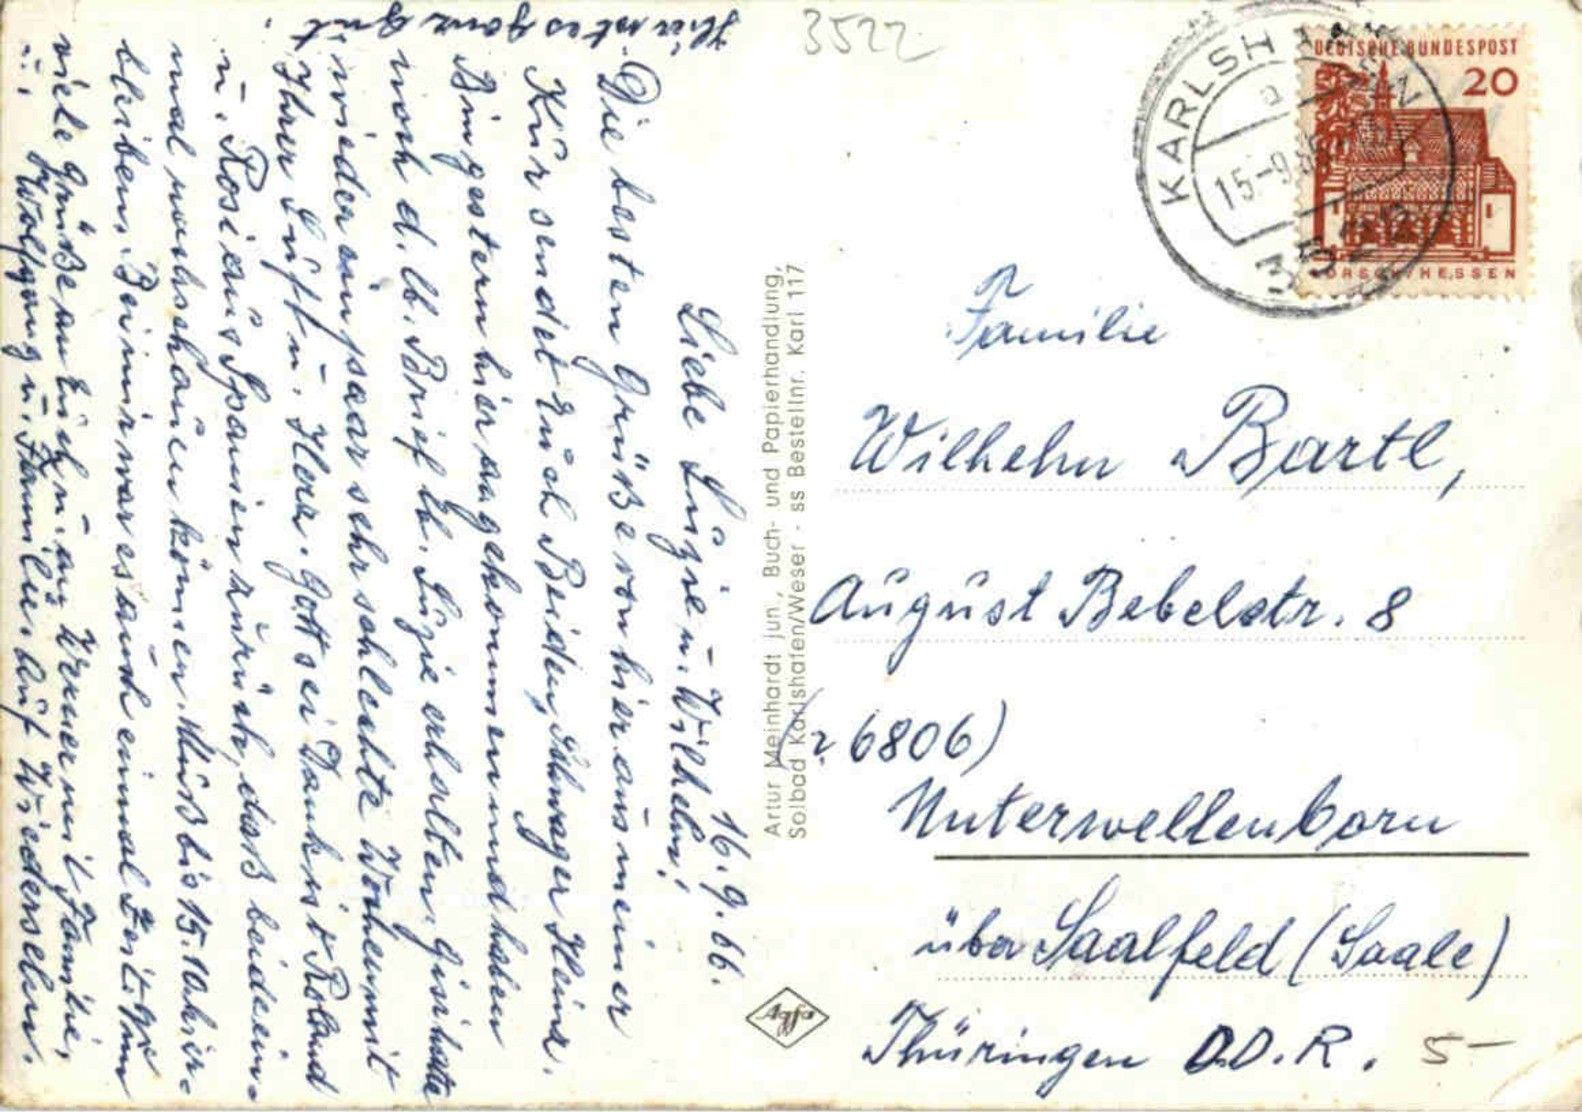 16.9.66.
Liebe Luzie u. Wilhelm!
Die besten Grüße von hier aus meiner
Kur sendet Euch Beiden, Schwager Heinz.
Bin gestern hier angekommen und haben
noch d. lb. Brief lb. Luzie erhalten. Gisi hatte
wieder ein paar sehr schlechte Wochen mit
Ihrer Luft u. Herz. Gott sei Dank ist Roland
u. Rosi aus Spanien zurück, daß beide ein-
mal nachschauen können. Muß bis 15. 10. hier
bleiben. Bei mir war es auch einmal Zeit. Nun
viele Grüße an Euch u. an Werner mit Familie,
u. Wolfgang u. Familie. Auf Wiedersehn.
Hier ist es ganz gut.
3522
KARLSHAFEN
a
15.-9.66
3522
DEUTSCHE BUNDESPOST
20
LORSCH/HESSEN
Artur Meinhardt jun., Buch- und Papierhandlung,
Solbad Karlshafen/Weser - ss Bestellnr. Karl 117
Agfa
Familie
Wilhelm Bartl,
August Bebelstr. 8
(6806)
Unterwellenborn
über Saalfeld (Saale)
Thüringen D.D.R.
5-